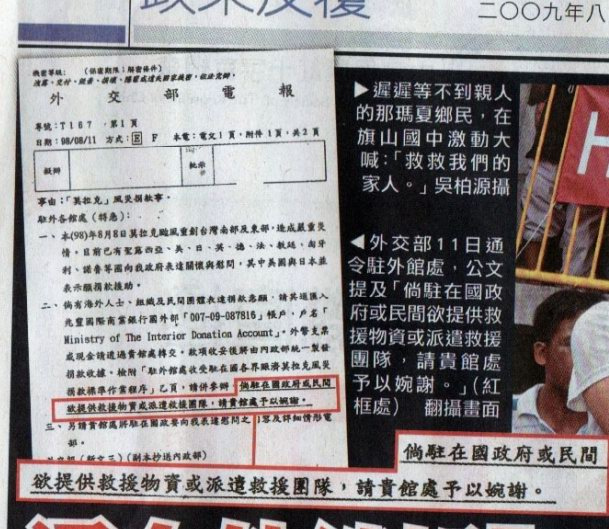 政策反覆
二〇〇九年八
機密等級： （保密期限；解密條件）
外交部電報
專號：T167 ．第1頁
日期：98/08/11 方式：E F 本電：電文1頁，附件1頁，共2頁
擬辦
批示
事由：「莫拉克」風災捐款事。
駐外各館處（特急）：
一、本(98)年8月8日莫拉克颱風重創台灣南部及東部，造成嚴重災
情。目前已有聖露西亞、美、日、英、德、法、教廷、匈牙
利、諾魯等國向我政府表達關懷與慰問，其中美國與日本並
表示願捐款援助。
二、倘有海外人士、組織及民間團體表達捐款意願，請其逕匯入
兆豐國際商業銀行國外部「007-09-087816」帳戶，戶名「
Ministry of The Interior Donation Account」。外幣支票
或現金請透過貴館處轉交，款項收妥後將由內政部統一製發
捐款收據。檢附「駐外館處收受駐在國各界賑濟莫拉克風災
捐款標準作業程序」乙頁，請併參辦。倘駐在國政府或民間
欲提供救援物資或派遣救援團隊，請貴館處予以婉謝。
三、另請貴館處將駐在國政要向我表達慰問之 容及詳細情形電
部。
（副本抄送內政部）
▶遲遲等不到親人
的那瑪夏鄉民，在
旗山國中激動大
喊：「救救我們的
家人。」吳柏源攝
◀外交部11日通
令駐外館處，公文
提及「倘駐在國政
府或民間欲提供救
援物資或派遣救援
團隊，請貴館處
予以婉謝。」（紅
框處） 翻攝畫面
倘駐在國政府或民間
欲提供救援物資或派遣救援團隊，請貴館處予以婉謝。